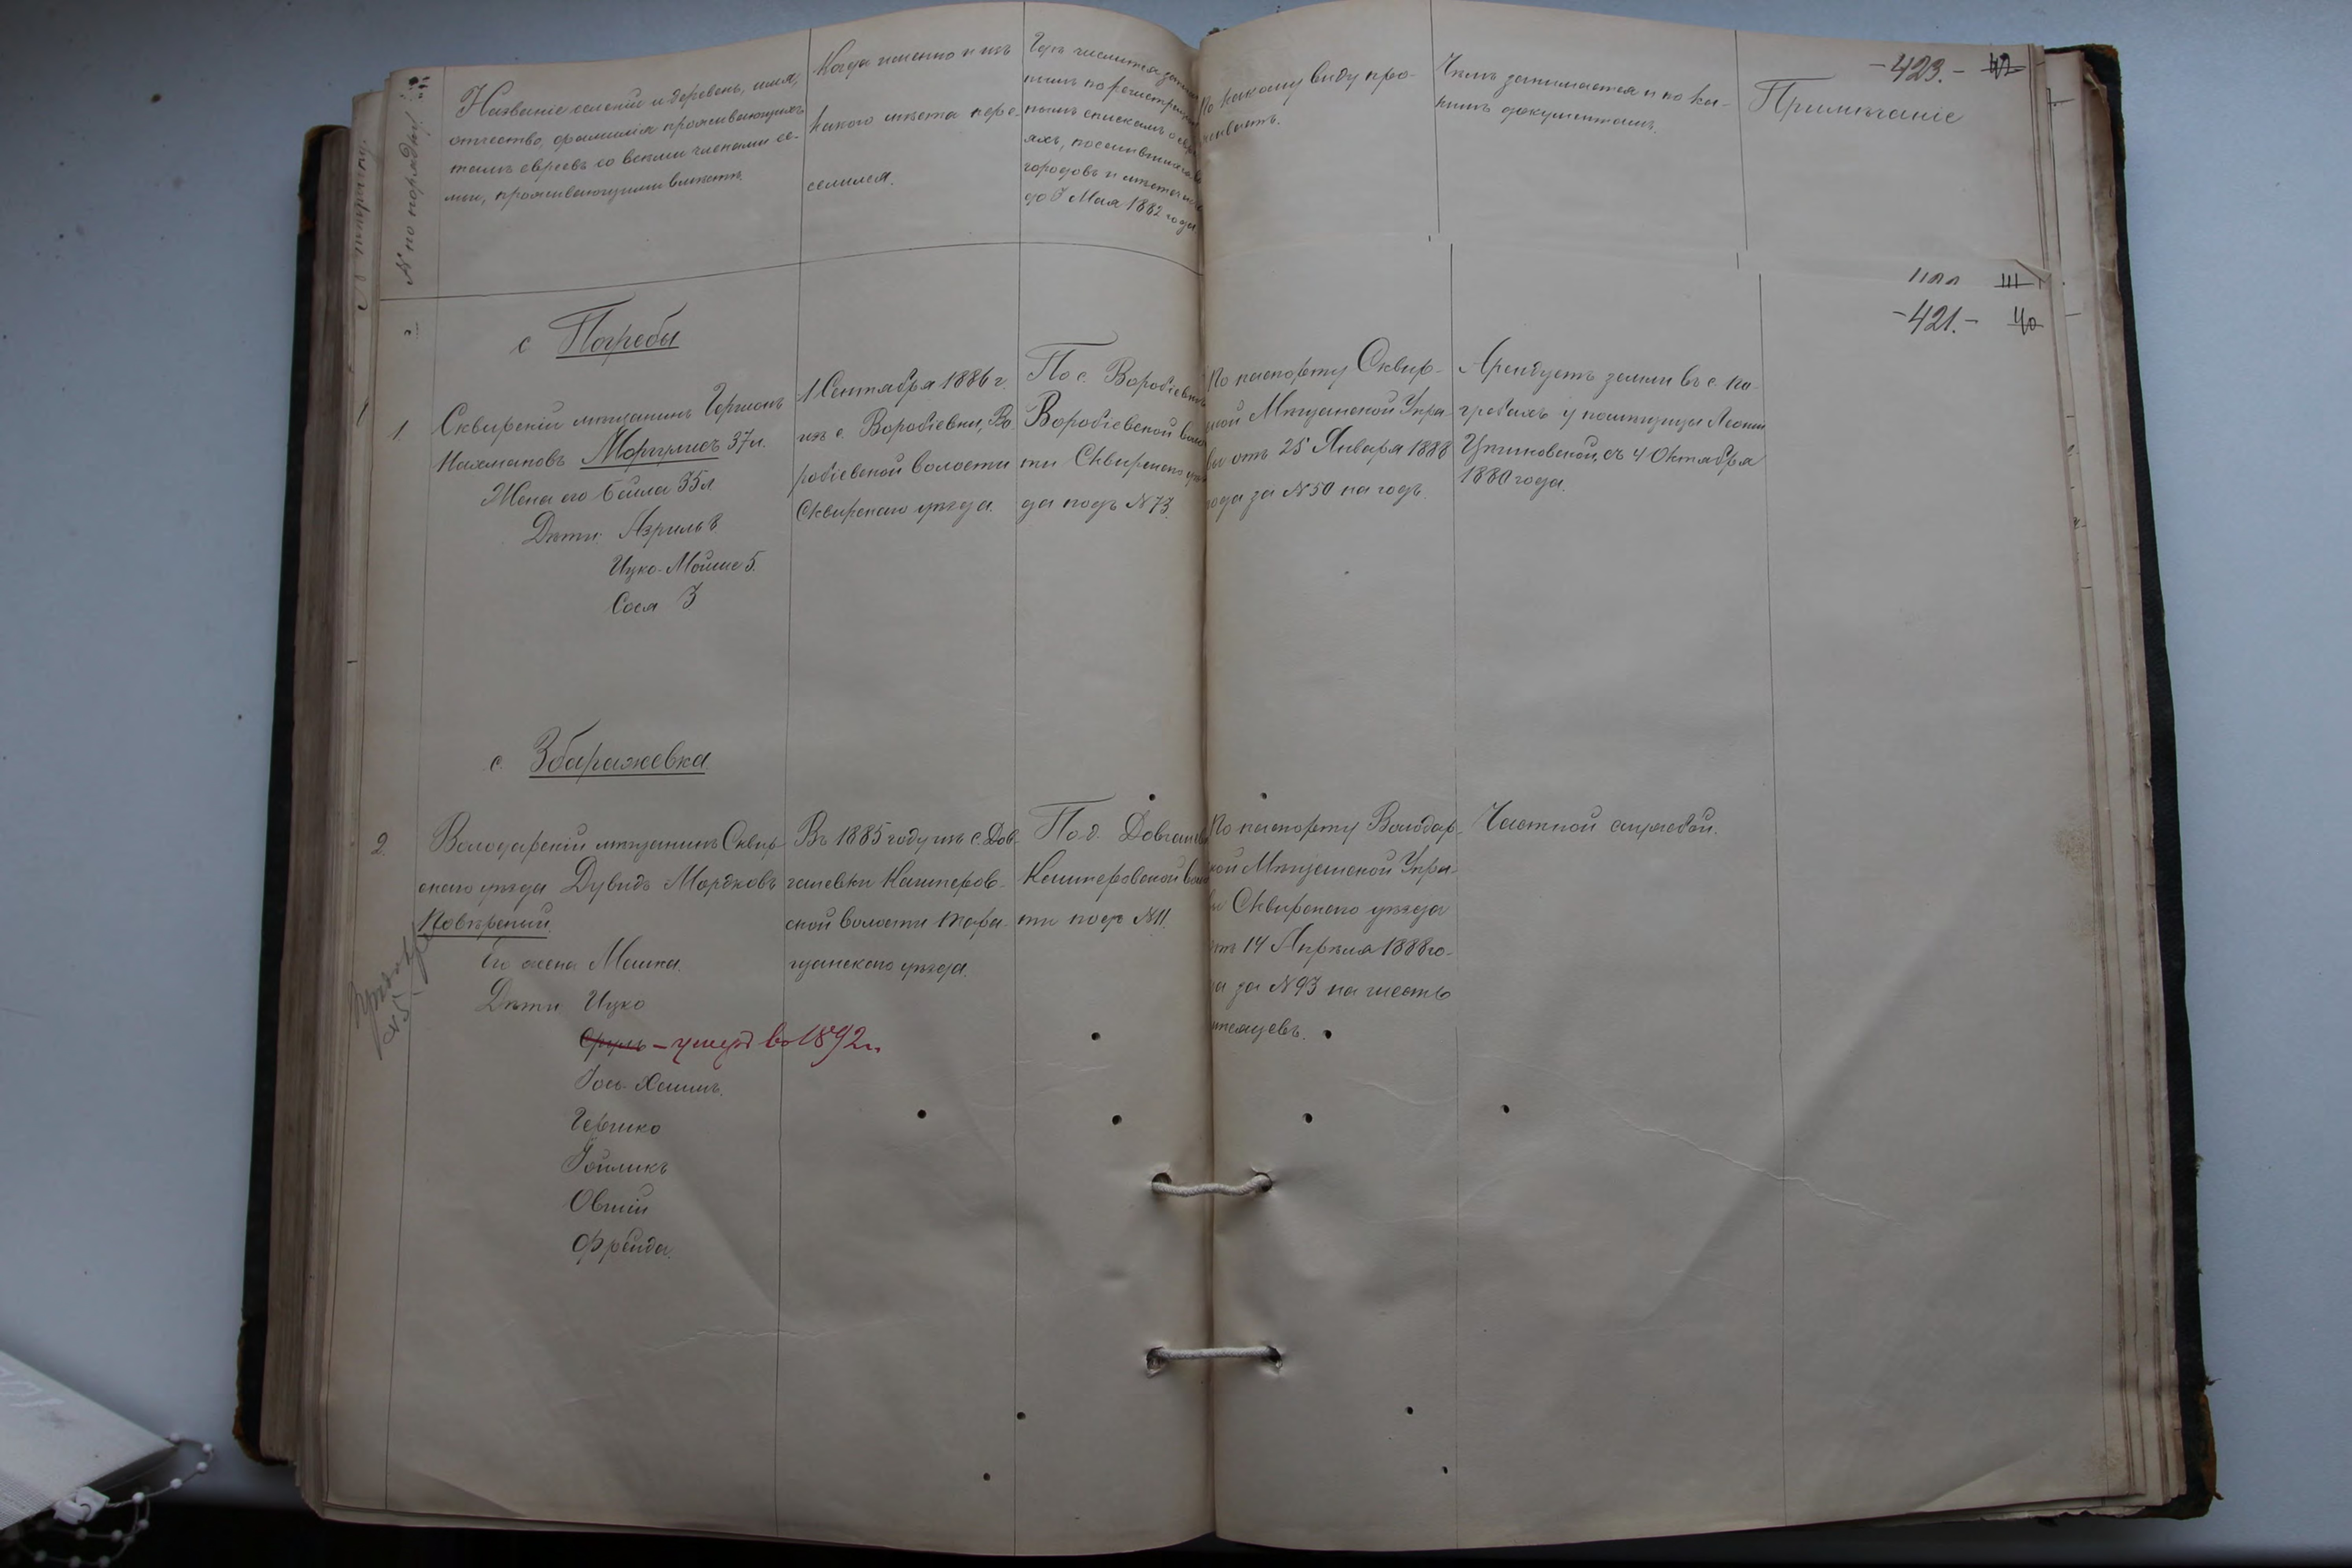 № по порядку
Названіе селеній и деревень, имя,
отчество, фамилія проживающихъ
тамъ евреевъ со всѣми членами се-
мьи, проживающими вмѣстѣ.
Когда именно и изъ
какого мѣста пере-
селился.
Гдѣ числится
нымъ по
нымъ спискамъ о
яхъ, поселившихся
городовъ и мѣстечекъ
до 3 Мая 1882 года
По какому виду про-
живаетъ.
Чѣмъ занимается и по ка-
кимъ документамъ.
Примѣчаніе
-423.-
-421.- 40
с Погребы
1
1.
Сквирскій мѣщанинъ Гершонъ
Нахмановъ Моргулисъ 37 л.
Жена его Бейла 35 л
Дѣти: Азриль 8.
Ицко-Мойше 5.
Сося 3
1 Сентября 1886 г.
изъ с. Воробіевки, Во
робіевской волости
Сквирскаго уѣзда.
По с. Воробіевкѣ
Воробіевской воло
ти Сквирскаго уѣз
да подъ №73.
По паспорту Сквир-
ской Мѣщанской Упра-
вы отъ 25 Января 1888
года за №50 на годъ.
Арендуетъ земли въ с. По-
гребахъ у помѣщицы
съ 4 Октября
1880 года.
с. Збаражевка.
2.
Володарскій мѣщанинъ Сквир-
скаго уѣзда Дувидъ Мордковъ
Повѣрений.
Его жена Машка.
Дѣти Ицко
Сруль – умеръ въ 1892 г.
Іось-Хаимъ.
Гершко
Іойликъ
Овшій
Фрейда.
№ 5
Въ 1885 году изъ с. Дов-
галевки Кашперов-
ской волости Тара-
щанскаго уѣзда.
По д. Довгалевкѣ
Кашперовской воло
ти подъ №11.
По паспорту Володар-
ской Мѣщанской Упра-
вы Сквирскаго уѣзда
отъ 14 Апрѣля 1888 го-
да за №93 на шесть
мѣсяцевъ.
Частной службой.